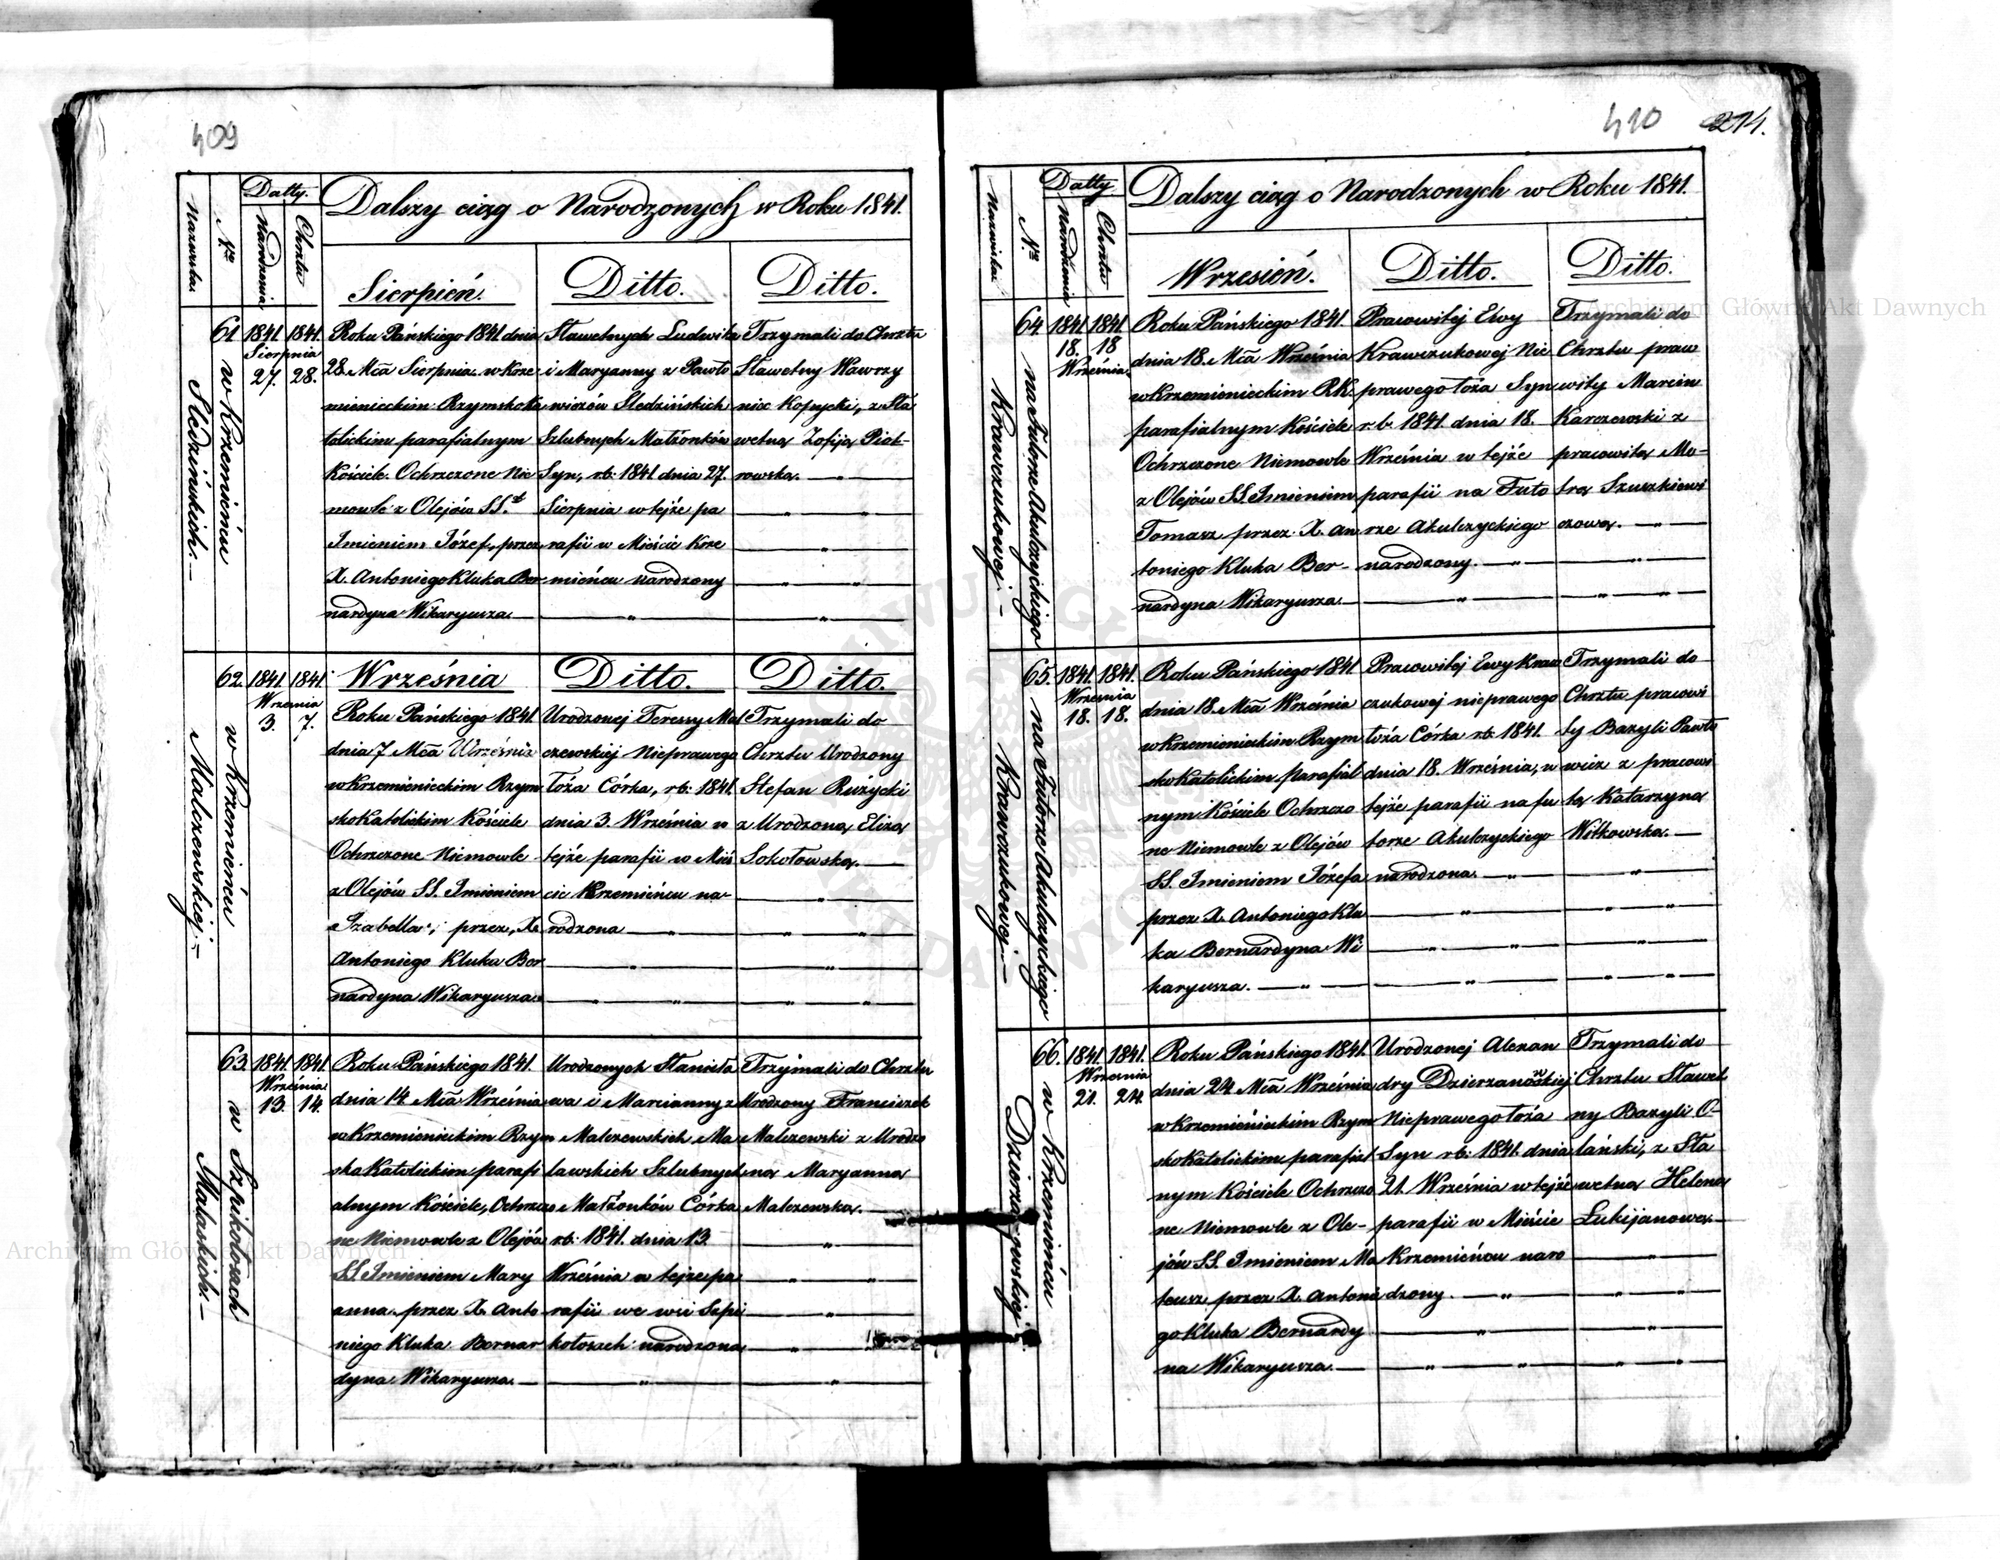 409
Nazwiska
Nro
Datty.
Narodzenia
Chrztu
Dalszy ciąg o Narodzonych w Roku 1841.
Sierpień.
Ditto.
Ditto.
61
1841. 1841.
Sierpnia
27. 28.
w Krzemieńcu
Śledzińskich.
Roku Pańskiego 1841 dnia
28. Mca Sierpnia w Krze
mienieckim Rzymsko Ka
tolickim parafialnym
Kościele Ochrzczone Nie
mowle z Olejów SS.
Imieniem Józef, przez
X. Antoniego Kluka Ber
nardyna Wikaryusza.
Sławetnych Ludwika
i Maryanny z Pawło
wiczów Śledzińskich
Szlubnych Małżonków
Syn, rb. 1841 dnia 27.
Sierpnia w tejże pa
rafii w Mieście Krze
mieńcu narodzony
Trzymali do Chrztu
Sławetny Wawrzy
niec Kopycki, z Sła
wetną Zofiją Piot
rowską.
62.
1841. 1841.
Września
3. 7.
w Krzemieńcu
Malczewskiej.
Września
Ditto.
Ditto.
Roku Pańskiego 1841.
dnia 7 Mca Września
w Krzemienieckim Rzym
sko Katolickim Kościele
Ochrzczone Niemowle
z Olejów SS. Imieniem
Izabella, przez, X.
Antoniego Kluka Ber
nardyna Wikaryusza.
Urodzonej Teressy Mal
czewskiej Nieprawego
Łóża Córka, rb: 1841.
dnia 3. Września w
tejże parafii w Mieś
cie Krzemieńcu na-
rodzona
Trzymali do
Chrztu Urodzony
Stefan Rużycki
z Urodzoną Elizą
Sokołowską.
63.
1841. 1841
Września
13. 14.
w Szpikołosach
Małaskich.
Roku Pańskiego 1841.
dnia 14 Mca Września
w Krzemienieckim Rzym
sko Katolickim parafi
alnym Kościele, Ochrzczo
ne Niemowle z Olejów
SS Imieniem Mary
anna przez X. Anto-
niego Kluka Bernar
dyna Wikaryusza.
Urodzonych Stanisła
wa i Marcianny z
Malczewskich Ma
ławskich Szlubnych
Małżonków Córka
rb: 1841. dnia 13.
Września w tejże pa
rafii we wsi Szpi
kołosach narodzona
Trzymali do Chrztu
Urodzony Franciszek
Malczewski z Urodzo
ną Maryanną
Malczewską.
410
214.
Nazwiska
Nro
Datty
Narodzenia
Chrztu
Dalszy ciąg o Narodzonych w Roku 1841.
Wrzesień.
Ditto.
Ditto.
64.
1841 1841
18. 18
Września.
na Futorze Akulczyckiego
Krawczukowej.
Roku Pańskiego 1841.
dnia 18. Mca Września
w Krzemienieckim R.K.
parafialnym Kościele
Ochrzczone Niemowle
z Olejów SS. Imieniem
Tomasz przez X. An
toniego Kluka Ber-
nardyna Wikaryusza.
Pracowitej Ewy
Krawczukowej Nie
prawego łoża Syn
r.b. 1841. dnia 18.
Września w tejże
parafii na Futo
rze Akulczyckiego
narodzony.
Trzymali do
Chrztu praw
wity Marcin
Karczewski z
pracowitą Ma-
trą Szuszkiewi
czową.
65.
1841. 1841.
Września
18. 18.
na Futorze Akulczyckiego
Krawczukowej.
Roku Pańskiego 1841.
dnia 18. Mca Września
w Krzemienieckim Rzym
sko Katolickim Parafial
nym Kościele Ochrzczo
ne Niemowle z Olejów
SS. Imieniem Józefa
przez X. Antoniego Klu
ka Bernardyna Wi
karyusza.
Pracowitej Ewy Kraw
czukowej nieprawego
łoża Córka rb. 1841.
dnia 18. Września, w
tejże parafii na fu
torze Akulczyckiego
narodzona.
Trzymali do
Chrztu pracowi
ty Bazyli Pawło
wicz z pracowi
tą Katarzyną
Witkowską.
66.
1841. 1841.
Września
21. 24.
w Krzemieńcu
Dzierzanowskiej.
Roku Pańskiego 1841.
dnia 24 Mca Września
w Krzemienieckim Rzym
sko Katolickim parafial
nym Kościele Ochrzczo
ne Niemowle z Ole-
jów SS. Imieniem Ma
teusz przez X. Antonie
go Kluka Bernardy
na Wikaryusza.
Urodzonej Alexan
dry Dzierzanowskiej
Nieprawego łoża
Syn rb: 1841. dnia
21. Września w tejże
parafii w Mieście
Krzemieńcu naro
dzony.
Trzymali do
Chrztu Sławet
ny Bazyli O-
lański, z Sła
wetną Heleną
Lukijanową.
Archiwum Główne Akt Dawnych
Archiwum Główne Akt Dawnych